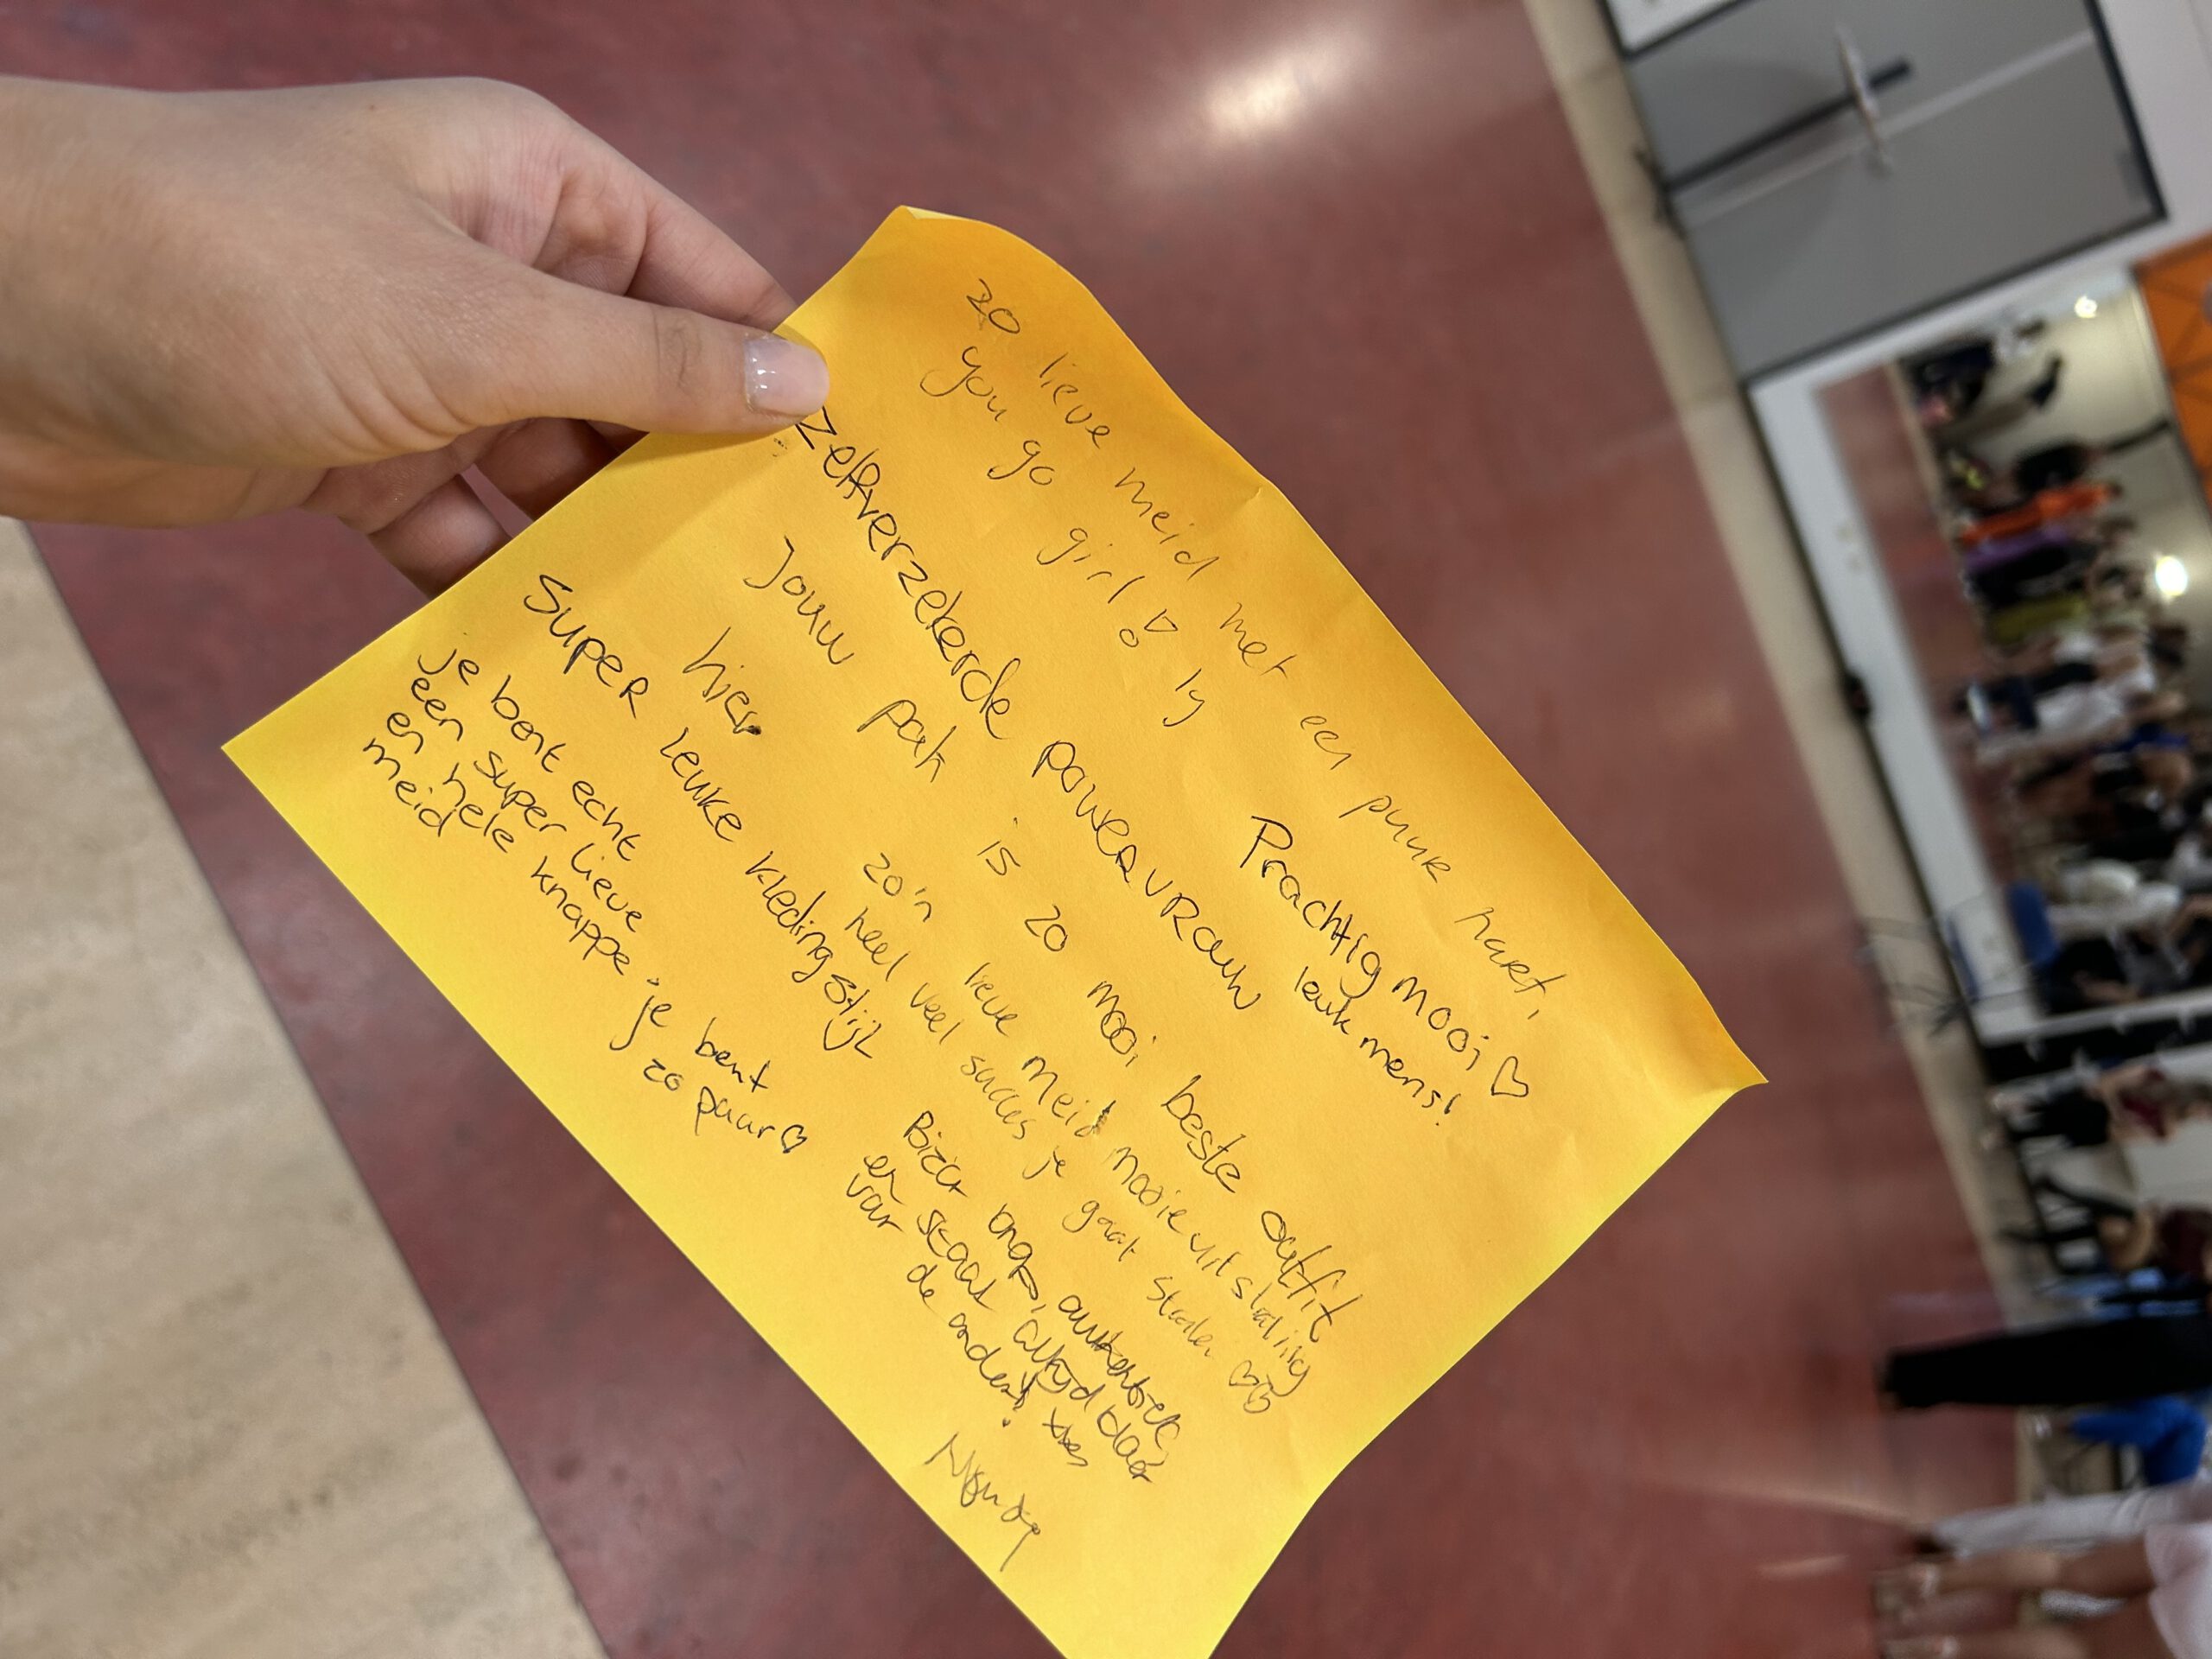 zo lieve meid met een puur hart,
you go girl! ly
Prachtig mooi ♡
leuk mens!
Zelfverzekerde powervrouw
Jouw pak is zo mooi beste outfit
hier
zo'n lieve meid mooie uitstraling
heel veel succes je gaat stralen ♡♡
Super leuke kledingstijl
je bent echt
een super lieve
en hele knappe
meid
je bent
zo puur ♡
authentiek,
en staat altijd klaar
voor de ander! xxx